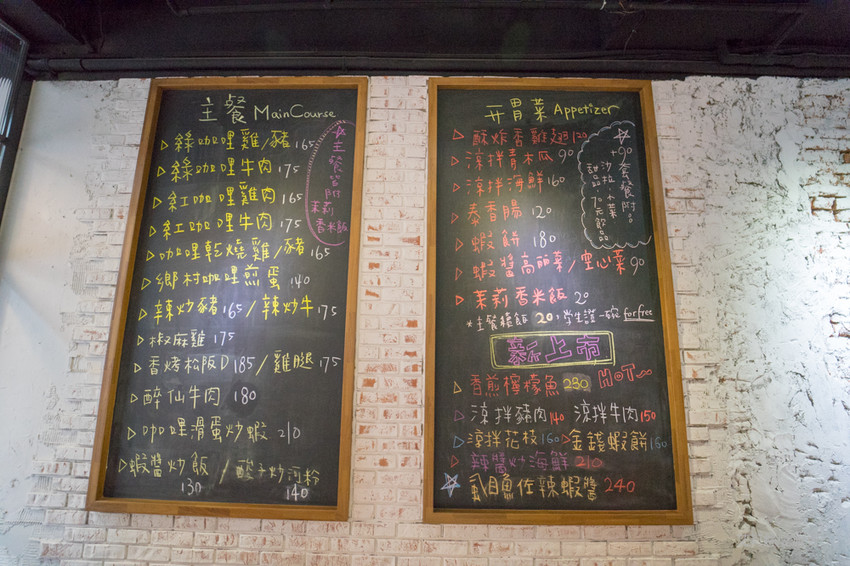 主餐 MainCourse
綠咖哩雞/豬 165
綠咖哩牛肉 175
紅咖哩雞肉 165
紅咖哩牛肉 175
咖哩乾燒雞/豬 165
鄉村咖哩煎蛋 140
辣炒豬 165 / 辣炒牛 175
椒麻雞 175
香烤松阪D 185 / 雞腿 175
醉仙牛肉 180
咖哩滑蛋炒蝦 210
蝦醬炒飯 130 / 酸子炒河粉 140
☆主餐皆附
茉莉
香米飯
开胃菜 Appetizer
酥炸香雞翅 120
涼拌青木瓜 90
涼拌海鮮 160
泰香腸 120
蝦餅 180
蝦醬高麗菜/空心菜 90
茉莉香米飯 20
*主餐換飯 20,學生證一碗 for free
☆
+90 套餐附品
沙拉 小菜
甜品 加元飲品
新上市
香煎檸檬魚 230 HOT
涼拌豬肉 140 涼拌牛肉 150
涼拌花枝 160 金錢蝦餅 160
辣醬炒海鮮 210
☆虱目魚佐辣蝦醬 240